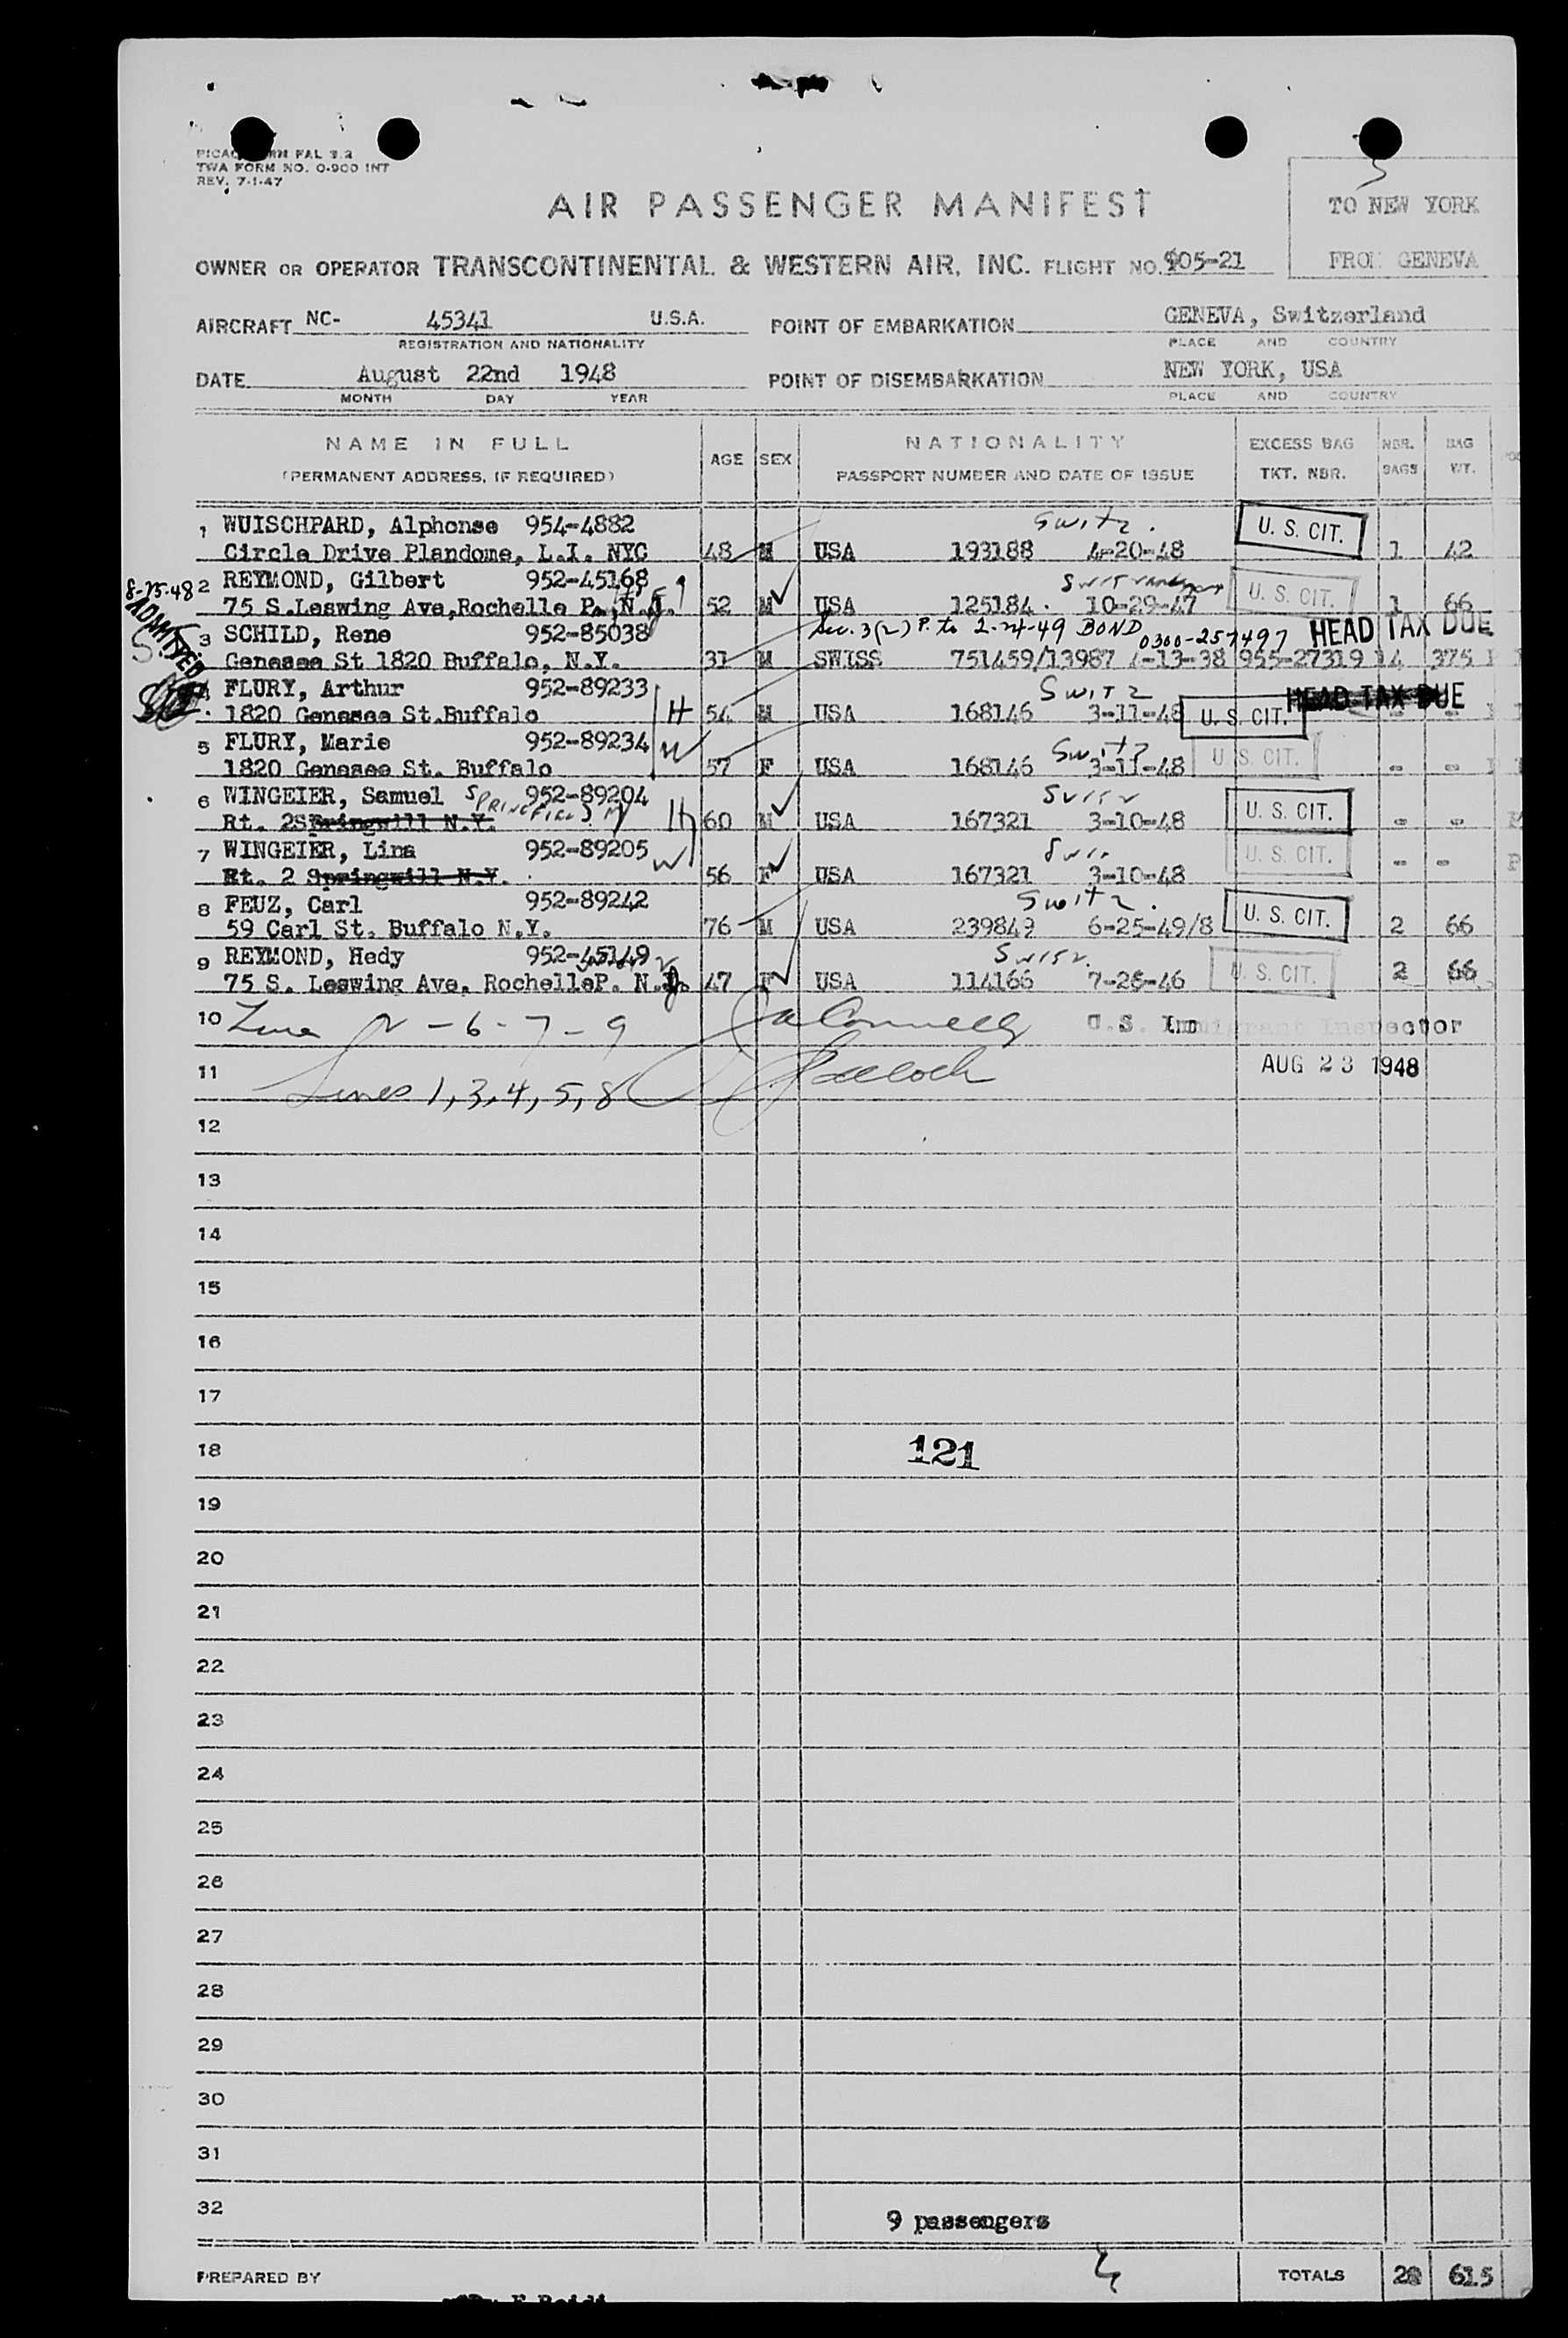 PICAO FORM FAL 3.2
TWA FORM NO. 0-900 INT
REV. 7-1-47
TO NEW YORK
AIR PASSENGER MANIFEST
FROM GENEVA
OWNER OR OPERATOR TRANSCONTINENTAL & WESTERN AIR, INC. FLIGHT NO. 905-21
AIRCRAFT NC- 45341 U.S.A. POINT OF EMBARKATION GENEVA, Switzerland
REGISTRATION AND NATIONALITY PLACE AND COUNTRY
DATE August 22nd 1948 POINT OF DISEMBARKATION NEW YORK, USA
MONTH DAY YEAR PLACE AND COUNTRY
NAME IN FULL AGE SEX NATIONALITY EXCESS BAG NBR. BAG
(PERMANENT ADDRESS, IF REQUIRED) PASSPORT NUMBER AND DATE OF ISSUE TKT. NBR. BAGS WT.
1 WUISCHPARD, Alphonse 954-4882 Switz. U. S. CIT.
Circle Drive Plandome, L.I. NYC 48 M USA 193188 4-20-48 1 42
8-25-48 2 REYMOND, Gilbert 952-45168 U. S. CIT.
75 S.Leswing Ave,Rochelle P., N.J. 52 M USA 125184 10-29-47 1 66
ADMITTED 3 SCHILD, Rene 952-85038 Sec. 3(2) P. to 2-24-49 BOND 0300-257497 HEAD TAX DUE
Genesee St 1820 Buffalo, N.Y. 31 M SWISS 751459/13987 -13-38 955-27319 14 375
4 FLURY, Arthur 952-89233 H Switz HEAD TAX DUE
1820 Genesee St.Buffalo 54 M USA 168146 3-11-48 U. S. CIT. - -
5 FLURY, Marie 952-89234 W Switz
1820 Genesee St. Buffalo 57 F USA 168146 3-11-48 U. S. CIT. - -
6 WINGEIER, Samuel SPRINGFIELD 952-89204 Switz
Rt. 2 Springwill N.Y. H 60 M USA 167321 3-10-48 U. S. CIT. - -
7 WINGEIER, Lina 952-89205 W U. S. CIT.
Rt. 2 Springwill N.Y. 56 F USA 167321 3-10-48 - -
8 FEUZ, Carl 952-89242 Switz. U. S. CIT.
59 Carl St. Buffalo N.Y. 76 M USA 239849 6-25-49/8 2 66
9 REYMOND, Hedy 952-45149 Switz.
75 S. Leswing Ave. RochelleP. N.J. 47 F USA 114166 7-26-46 U. S. CIT. 2 66
10 Line 2-6-7-9 U.S. Immigrant Inspector
11 AUG 23 1948
Lines 1, 3, 4, 5, 8
12
13
14
15
16
17
18 121
19
20
21
22
23
24
25
26
27
28
29
30
31
32 9 passengers
PREPARED BY TOTALS 20 615